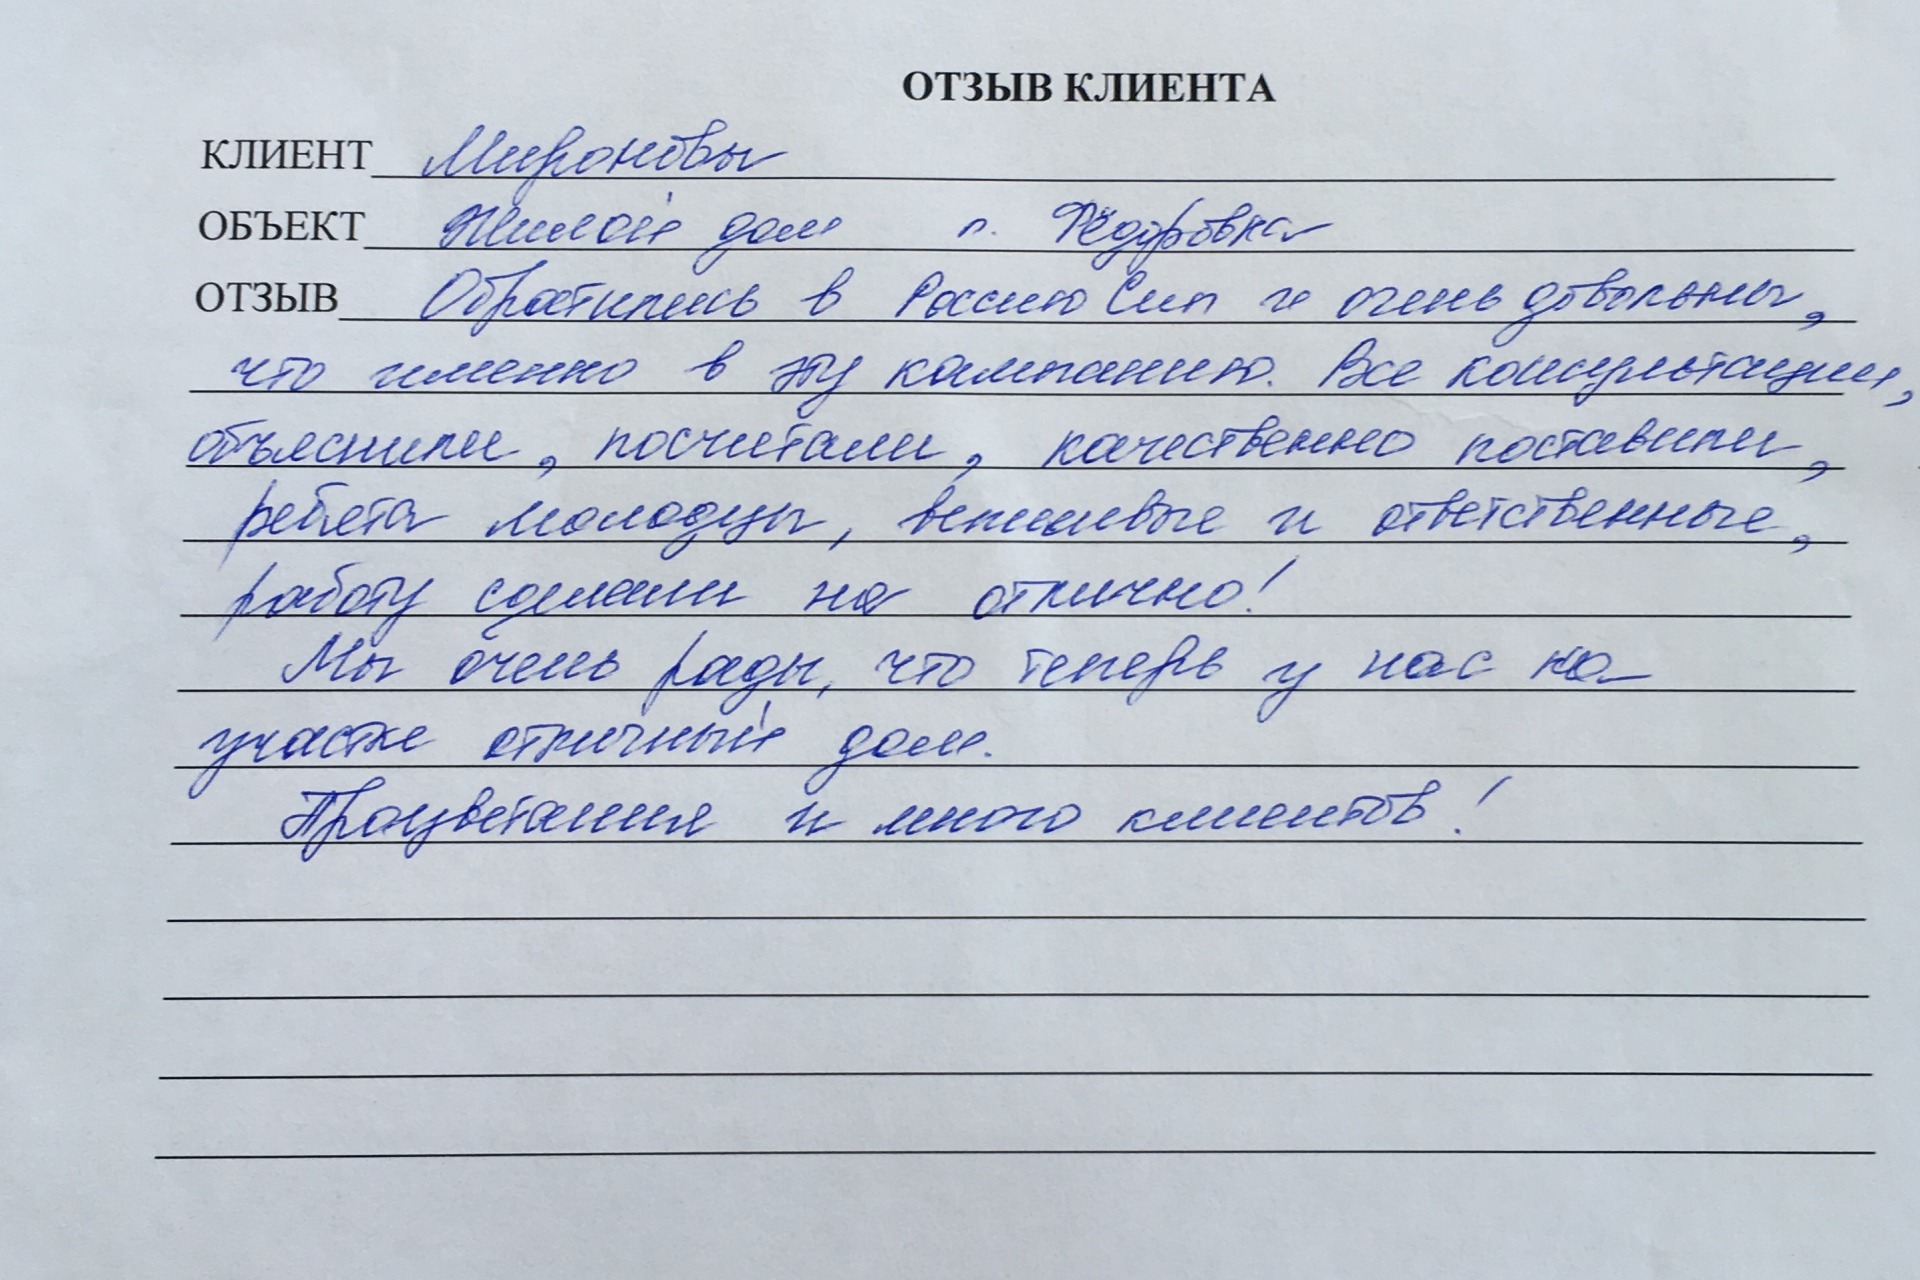 ОТЗЫВ КЛИЕНТА
КЛИЕНТ Мироновы
ОБЪЕКТ Жилой дом п. Фёдоровка
ОТЗЫВ Обратились в Россию Сип и очень довольны,
что именно в эту компанию. Все консультации,
объяснили, посчитали, качественно поставили,
ребята молодцы, вежливые и ответственные,
работу сделали на отлично!
Мы очень рады, что теперь у нас на
участке отличный дом.
Процветания и много клиентов!